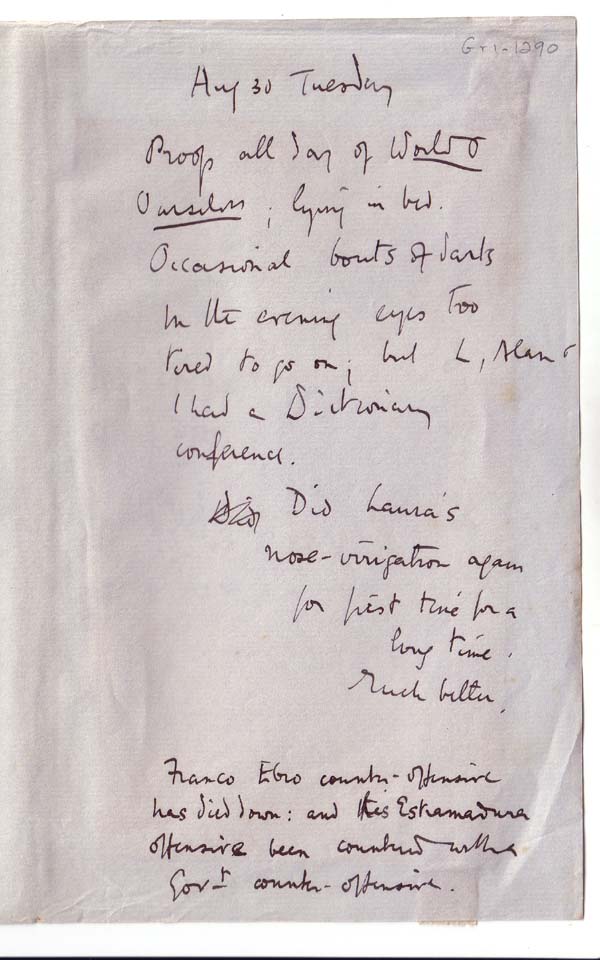 Gr1-1290
Aug 30 Tuesday
Proofs all day of World &
Ourselves; lying in bed.
Occasional bouts of darts
In the evening eyes too
tired to go on; but L, Alan &
I had a Dictionary
conference.
Did Laura's
nose-irrigation again
for first time for a
long time.
Much better.
Franco Ebro counter-offensive
has died down: and his Estramadura
offensive been countered with a
Govt counter-offensive.